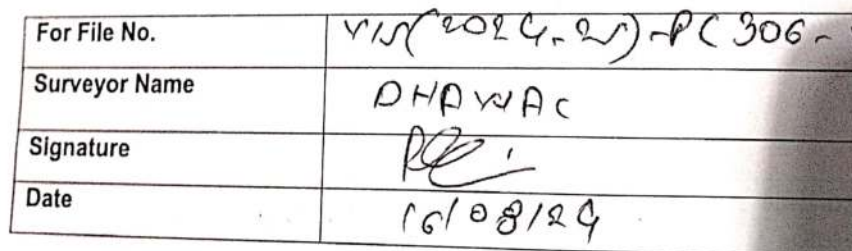 For File No. VIS(2024-25)-PC 306-
Surveyor Name DHAWAL
Signature
Date 16/08/24